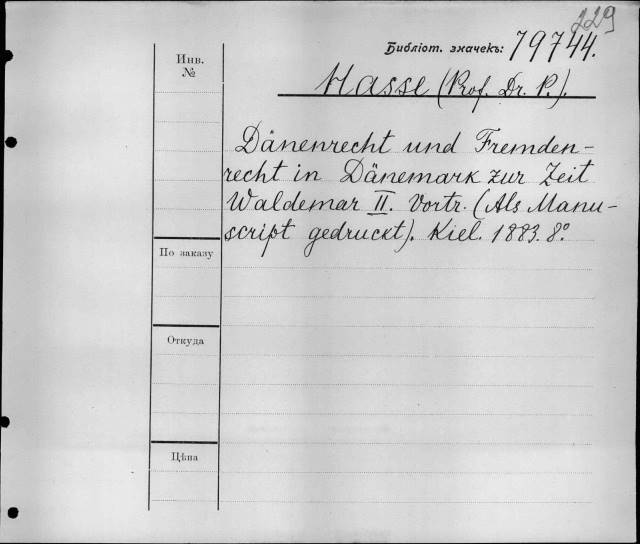 229
Библіот. значекъ: 79744.
Инв.
№
Hasse (Prof. Dr. P.).
Dänenrecht und Fremden-
recht in Dänemark zur Zeit
Waldemar II. Vortr. (Als Manu-
script gedruckt). Kiel. 1883. 8°.
По заказу
Откуда
Цѣна